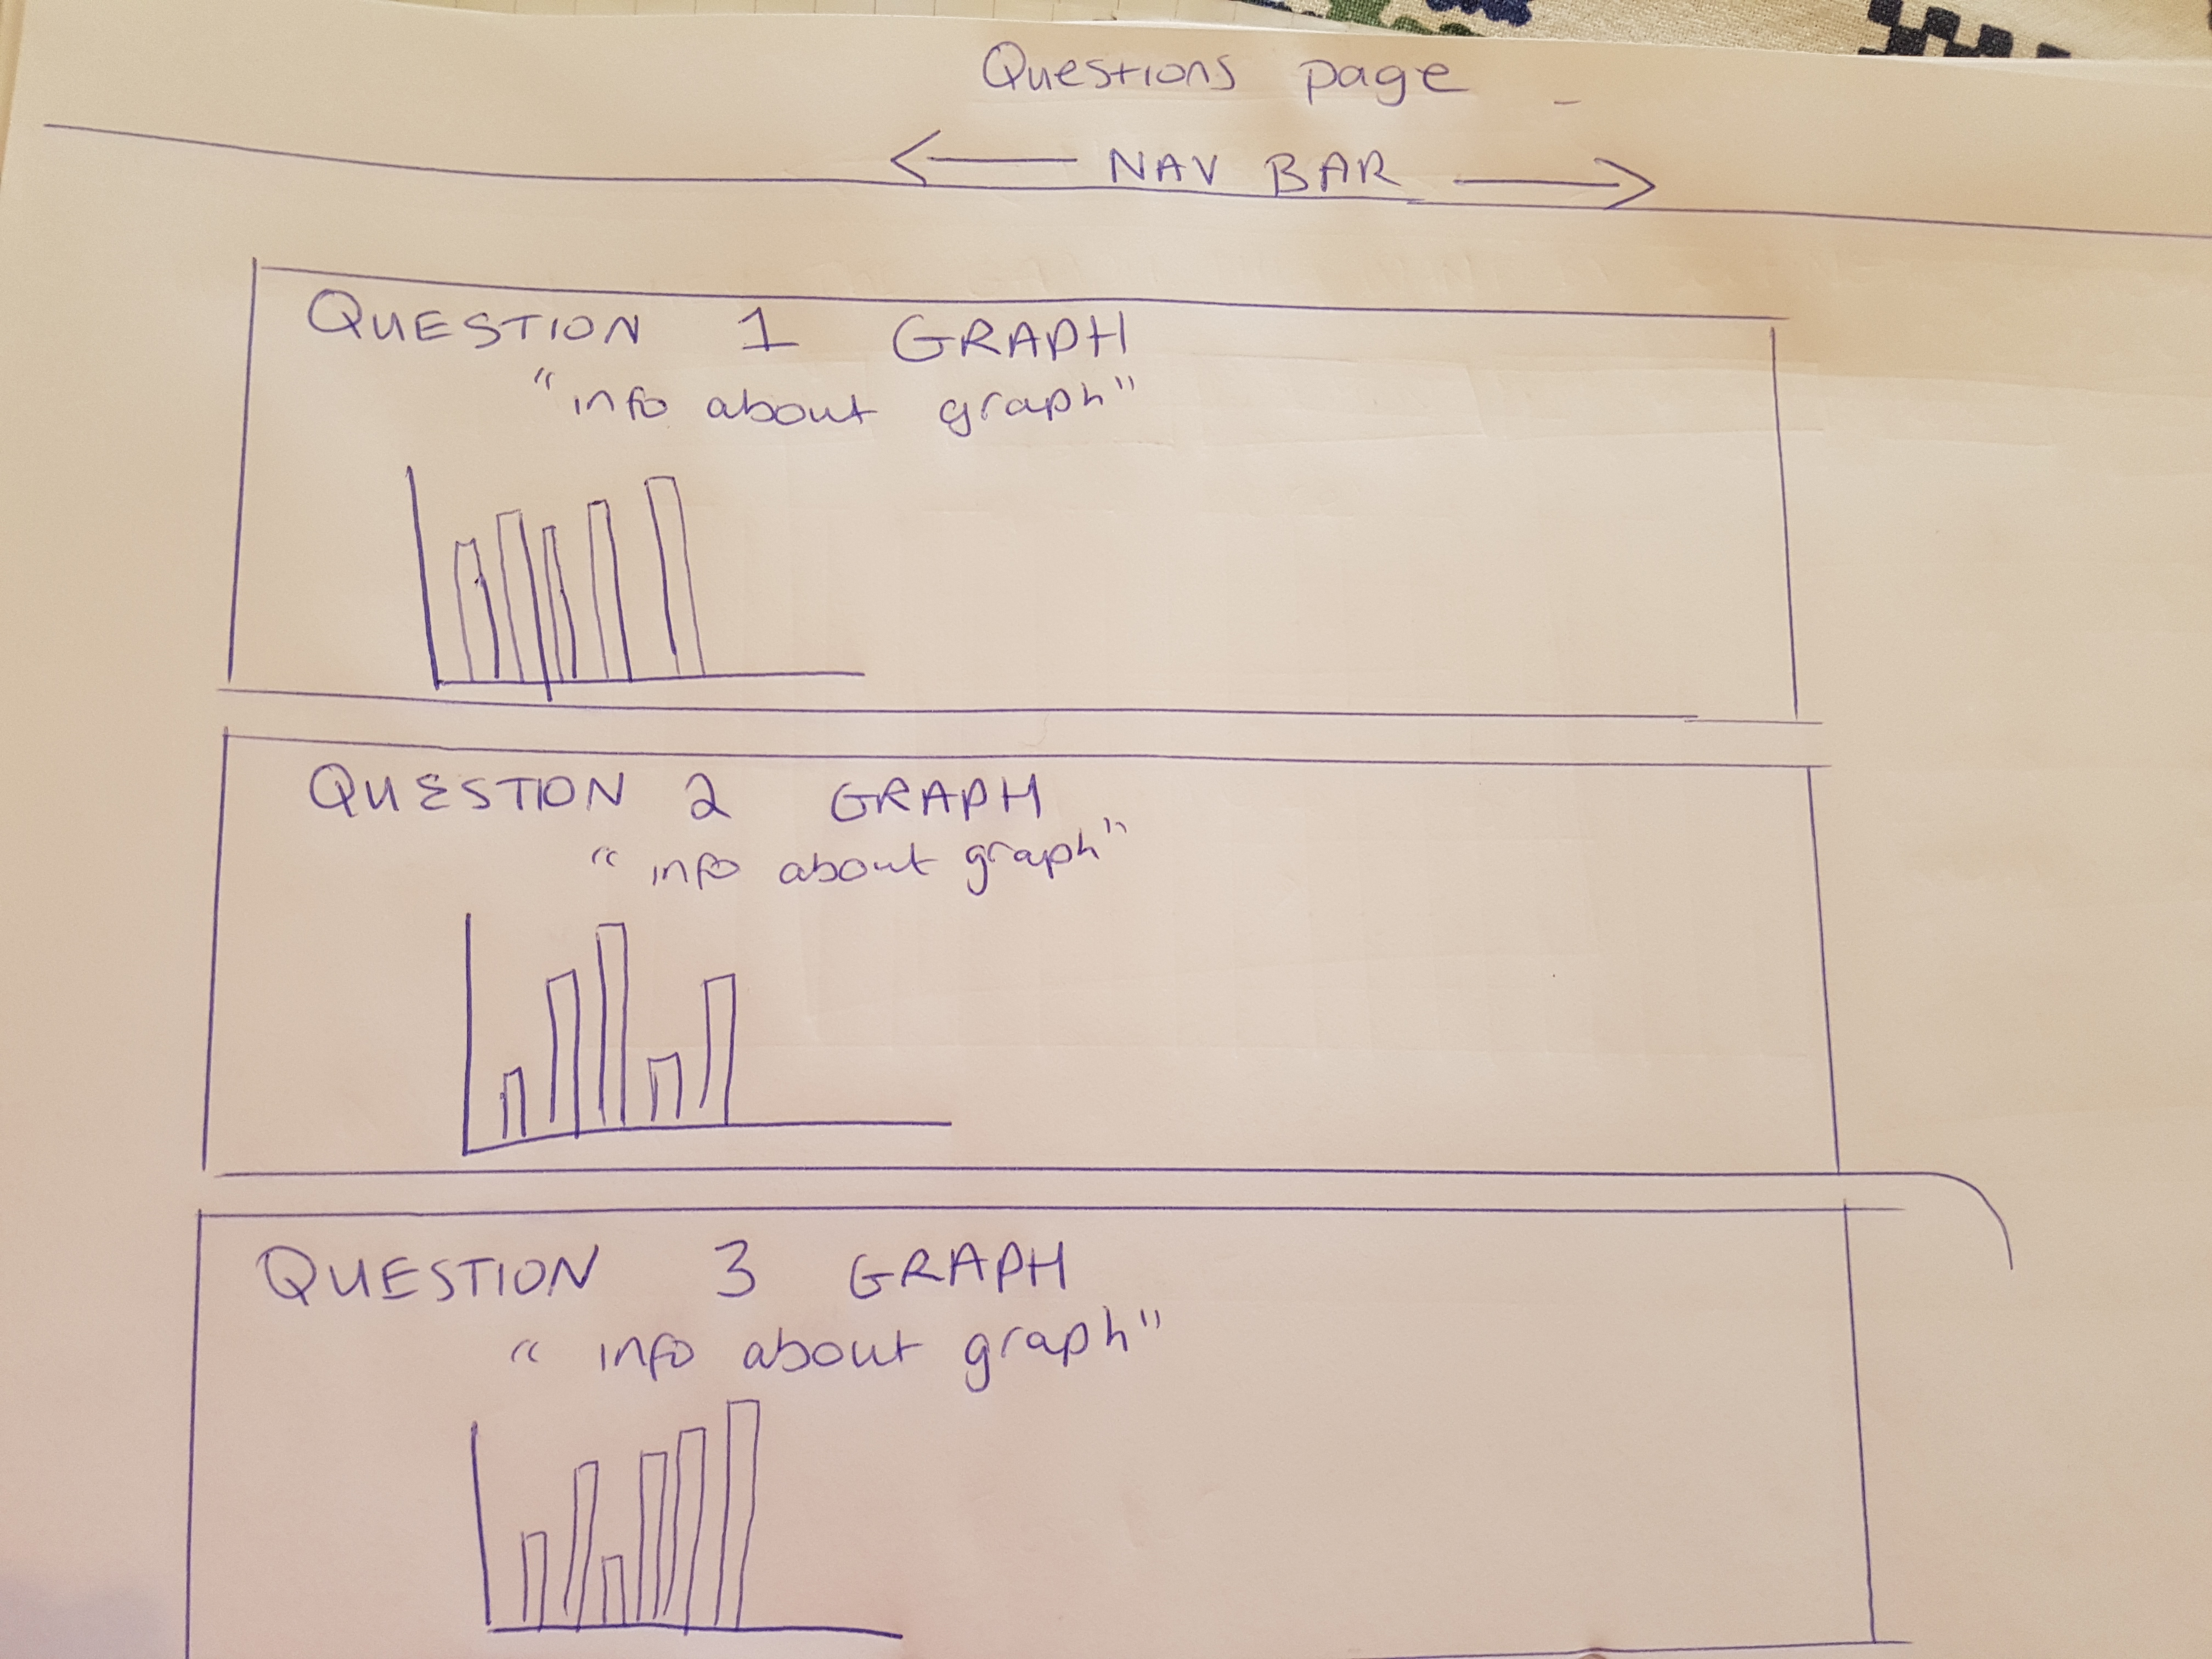 Questions page -
← NAV BAR →
QUESTION 1 GRAPH
"info about graph"
QUESTION 2 GRAPH
"info about graph"
QUESTION 3 GRAPH
"info about graph"